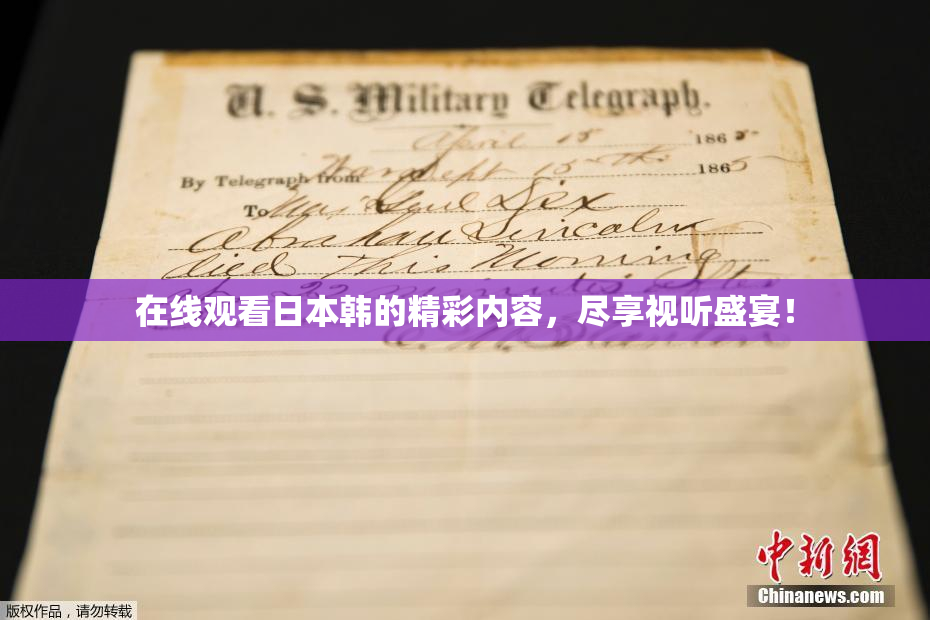 U. S. Military Telegraph.
April 15 1865
By Telegraph from War Dept 15th 1865
To Maj Genl Dix
Abraham Lincoln
died This Morning
at 22 minutes after
在线观看日本韩的精彩内容，尽享视听盛宴！
E. M. Stanton
中新網
Chinanews.com
版权作品，请勿转载